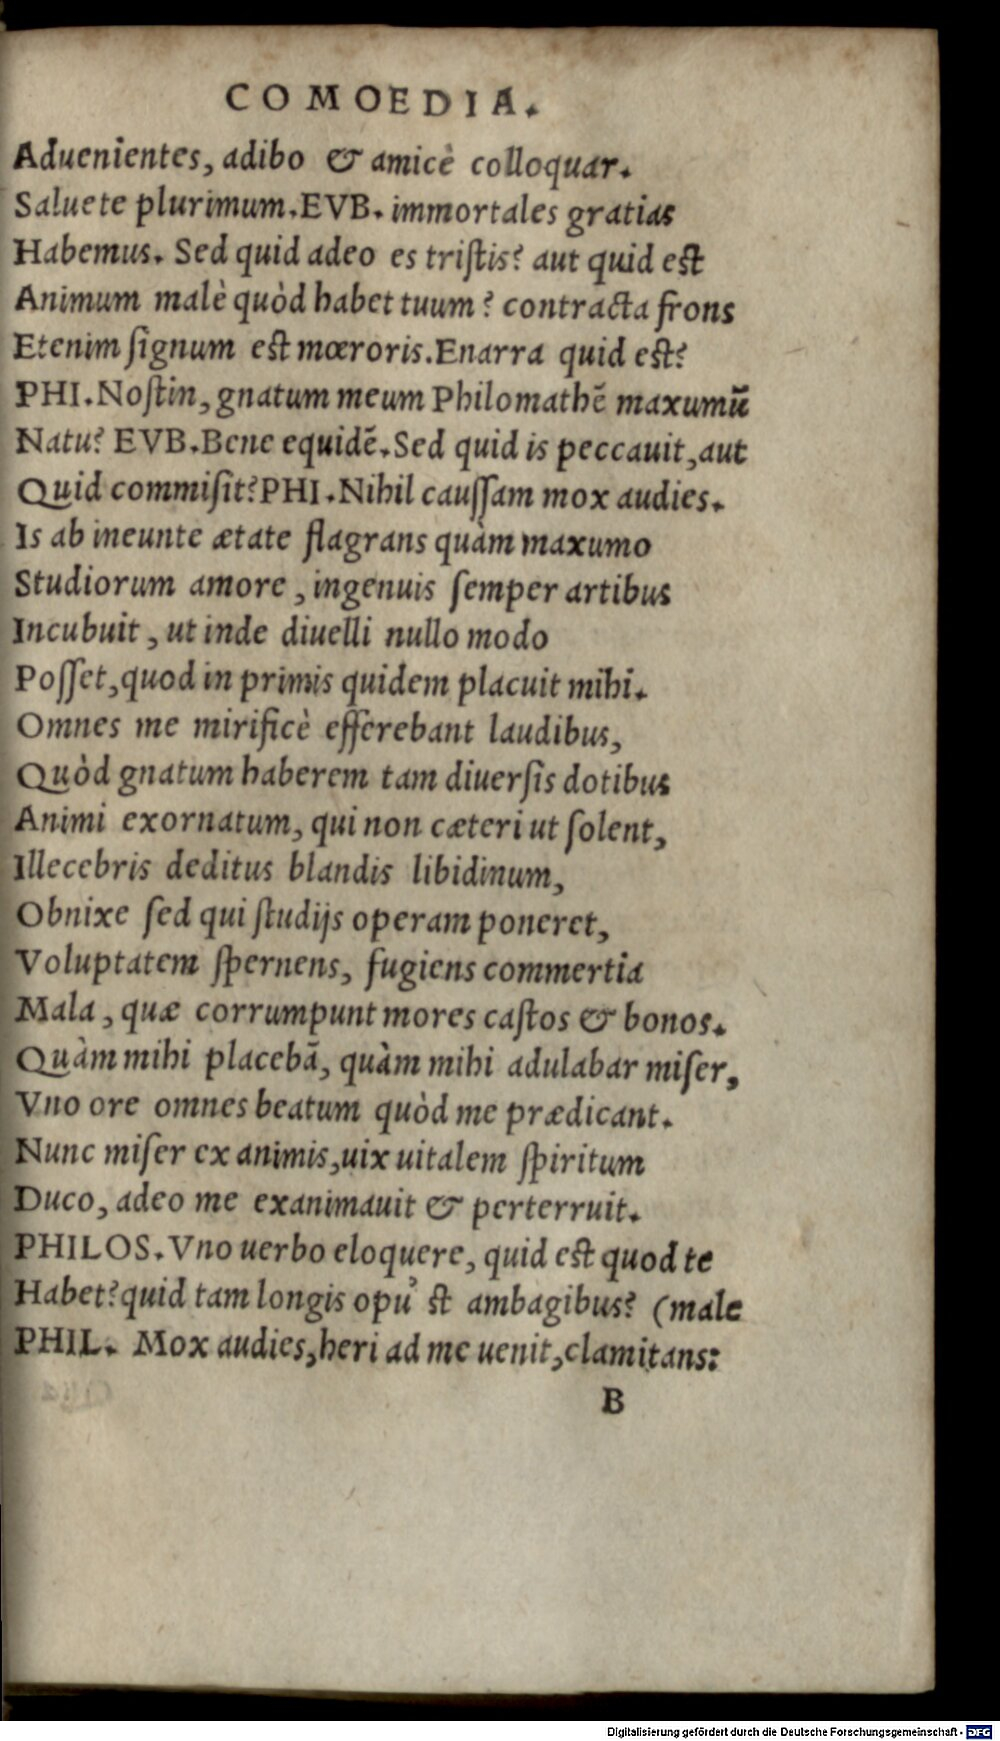 COMOEDIA.
Aduenientes, adibo & amicè colloquar.
Saluete plurimum. EVB. immortales gratias
Habemus. Sed quid adeo es triſtis? aut quid est
Animum malè quòd habet tuum? contracta frons
Etenim ſignum est mœroris. Enarra quid est?
PHI. Noſtin, gnatum meum Philomathē maxumū
Natu? EVB. Bene equidē. Sed quid is peccauit, aut
Quid commiſit? PHI. Nihil cauſſam mox audies.
Is ab ineunte ætate flagrans quàm maxumo
Studiorum amore, ingenuis ſemper artibus
Incubuit, ut inde diuelli nullo modo
Poſſet, quod in primis quidem placuit mihi.
Omnes me mirificè efferebant laudibus,
Quòd gnatum haberem tam diuerſis dotibus
Animi exornatum, qui non cæteri ut ſolent,
Illecebris deditus blandis libidinum,
Obnixe ſed qui ſtudijs operam poneret,
Voluptatem ſpernens, fugiens commertia
Mala, quæ corrumpunt mores caſtos & bonos.
Quàm mihi placebā, quàm mihi adulabar miſer,
Vno ore omnes beatum quòd me prædicant.
Nunc miſer ex animis, uix uitalem ſpiritum
Duco, adeo me exanimauit & perterruit.
PHILOS. Vno uerbo eloquere, quid est quod te
Habet? quid tam longis opu᾽ st ambagibus? (male
PHIL. Mox audies, heri ad me uenit, clamitans:
B
Digitalisierung gefördert durch die Deutsche Forschungsgemeinschaft - DFG